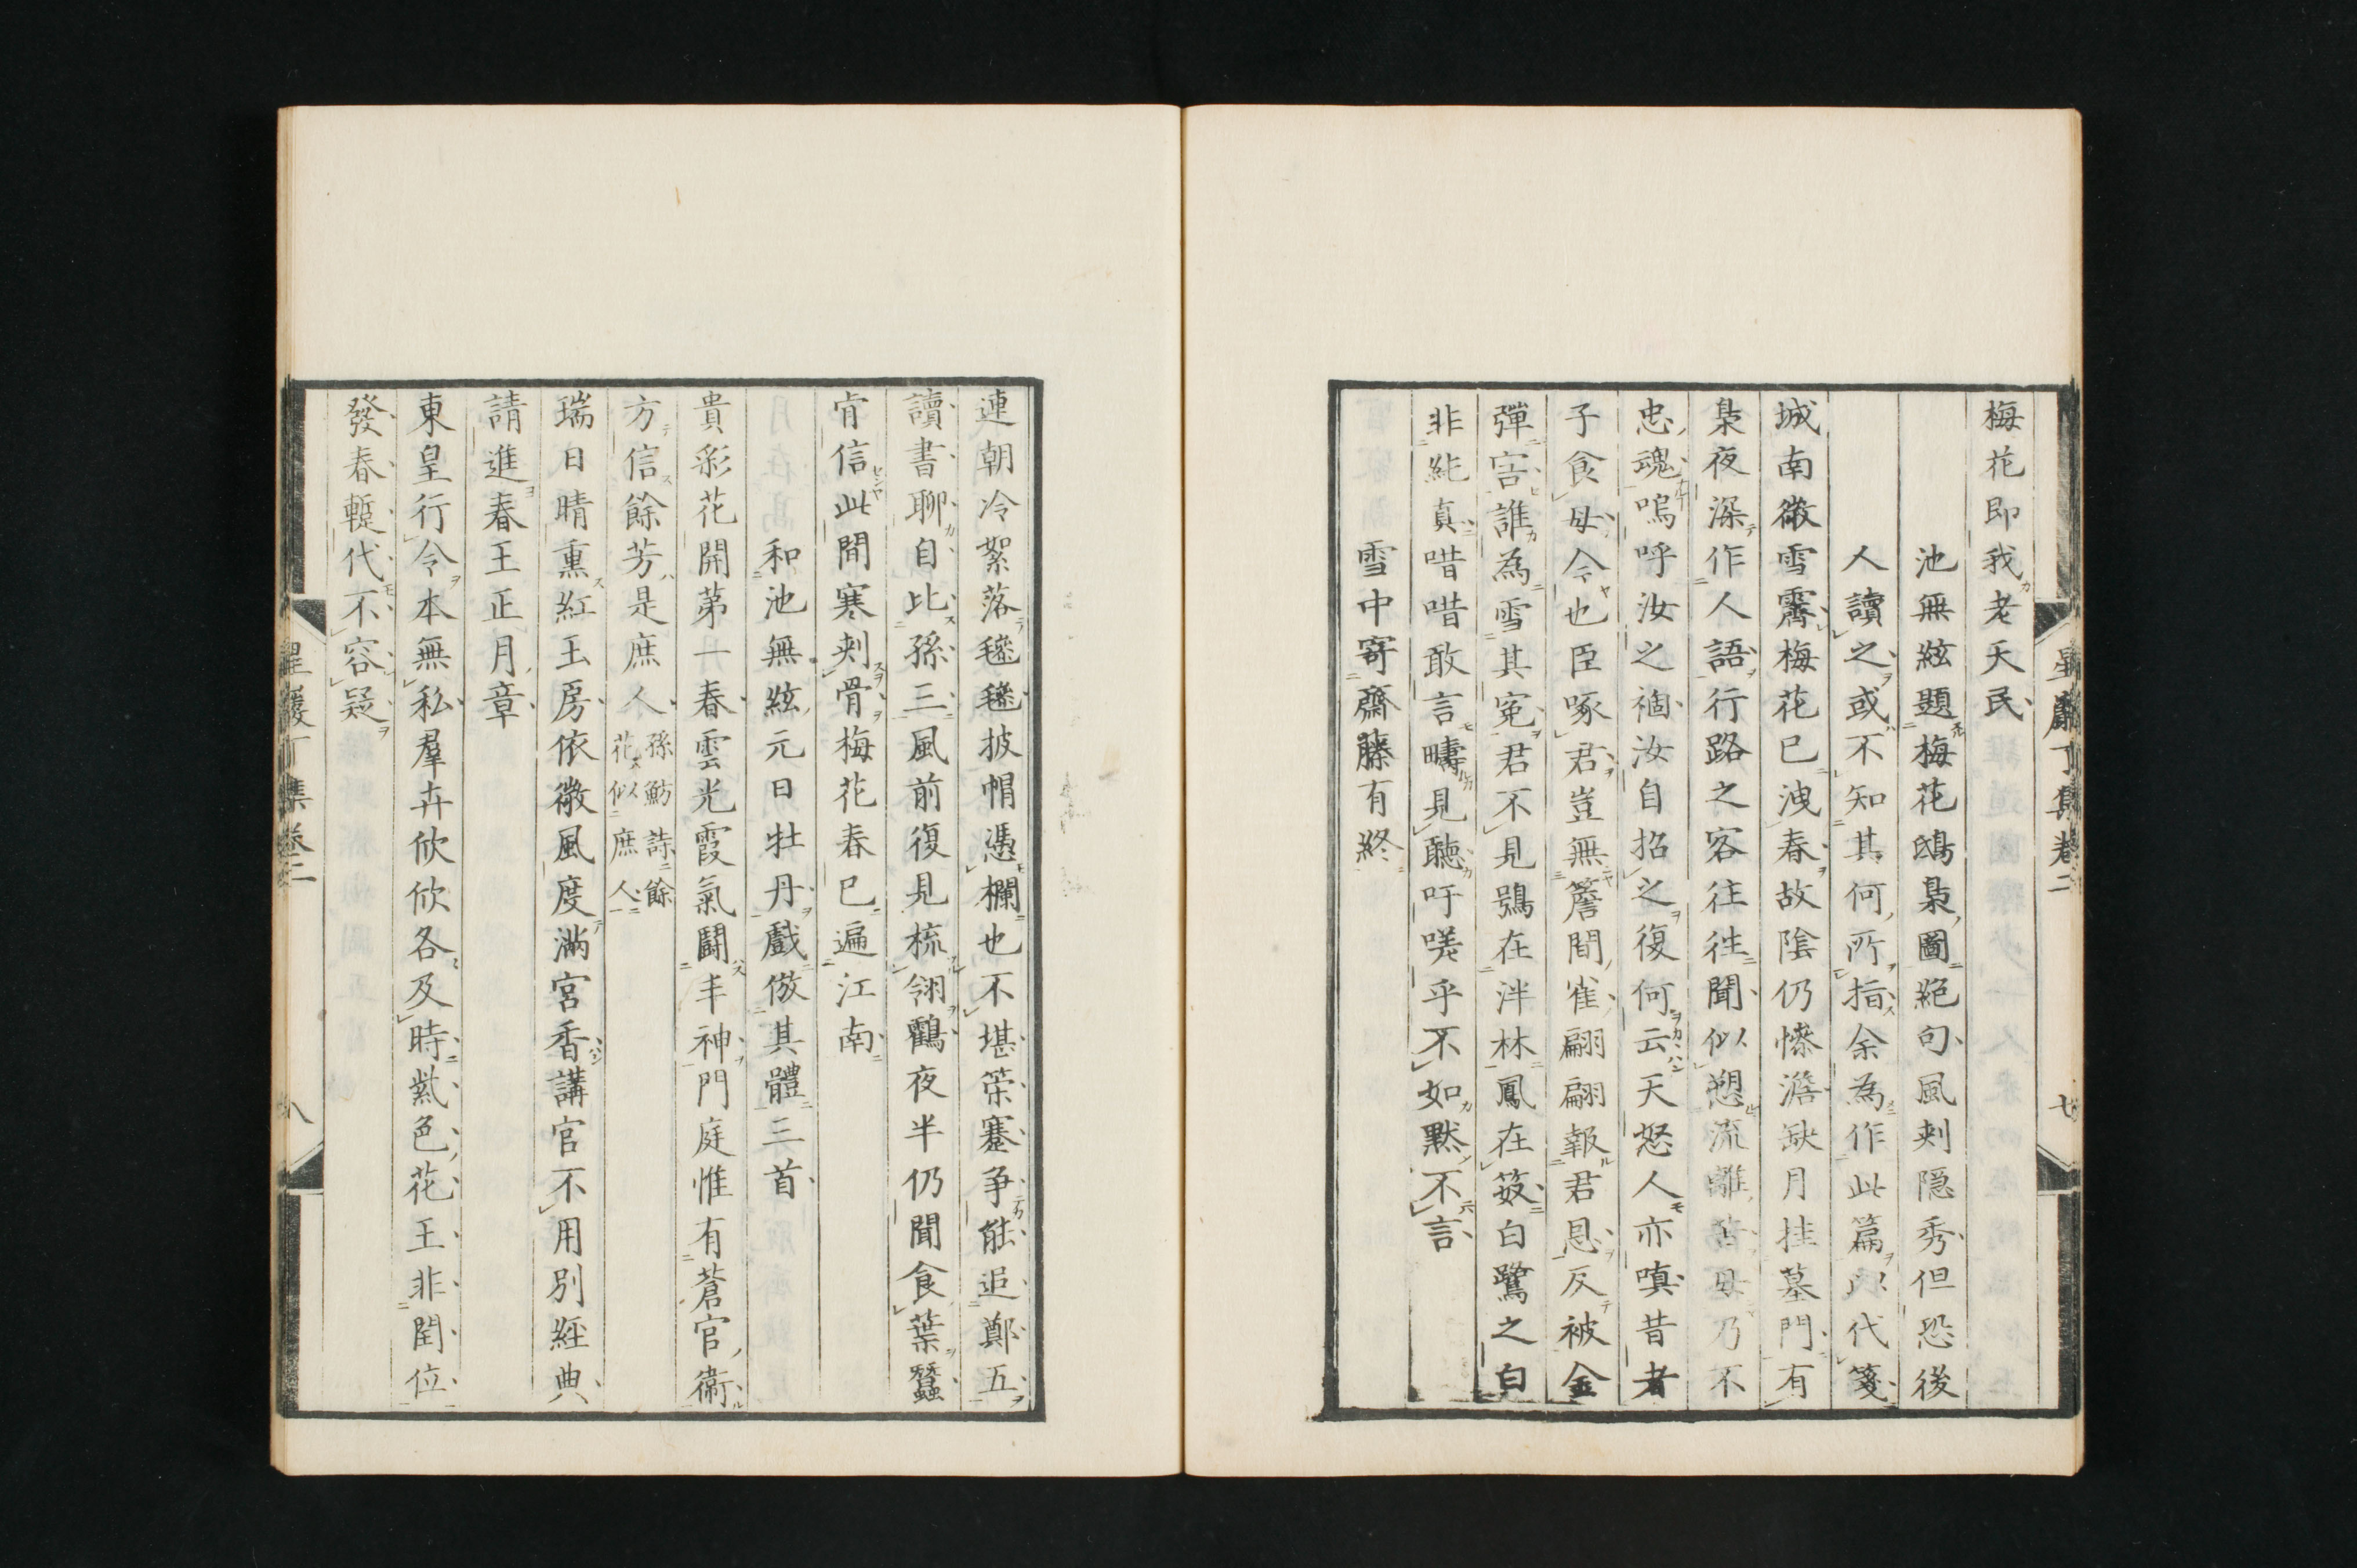 梅花即我老天民
池無絃題梅花鴟梟圖絕句風刺隱秀但恐後
人讀之或不知其何所指余為作此篇以代箋
城南微雪霽梅花已洩春故陰仍慘澹缺月挂墓門有
梟夜深作人語行路之客往往聞似愬流離苦母乃不
忠魂嗚呼汝之禍汝自招之復何云天怒人亦嗔昔者
子食母今也臣啄君豈無簷間雀翩翩報君恩反被金
彈害誰為雪其冤君不見鴞在泮林鳳在笯白鷺之白
非純真唶唶敢言疇見聽吁嗟乎不如默不言
雪中寄齋藤有終
星巖丁集卷二
七
連朝冷絮落毿毿披帽憑欄也不堪策蹇爭能追鄭五
讀書聊自比孫三風前復見梳翎鸛夜半仍聞食葉蠶
肯信此間寒刺骨梅花春已遍江南
和池無絃元日牡丹戲倣其體三首
貴彩花開第一春雲光霞氣鬪丰神門庭惟有蒼官衛
方信餘芳是庶人
孫魴詩餘
花似庶人
瑞日晴熏紅玉房依微風度滿宮香講官不用別經典
請進春王正月章
東皇行令本無私羣卉欣欣各及時紫色花王非閏位
發春蹔代不容疑
星巖丁集卷二
八